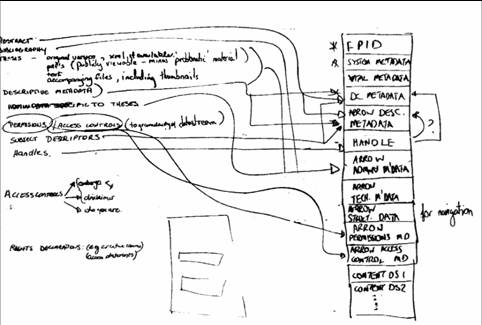 ABSTRACT
BIBLIOGRAPHY
THESES - original version, xml if available
pdf's (publicly viewable - minus 'problematic' material)
text
accompanying files, including thumbnails
DESCRIPTIVE METADATA
SPECIFIC TO THESES
PERMISSIONS / ACCESS CONTROLS (to granularity of datastream)
SUBJECT DESCRIPTORS
Handles.
ACCESS CONTROLS
RIGHTS DECLARATIONS: (eg creative commons)
* F PID
* SYSTEM METADATA
VITAL METADATA
DC METADATA
ARROW DESC.
METADATA
HANDLE
ARROW
ADMIN M'DATA
ARROW
TECH. M'DATA
ARROW
STRUCT. DATA
ARROW
PERMISSIONS MD
ARROW ACCESS
CONTROL MD
CONTENT DS1
CONTENT DS2
?
for navigation